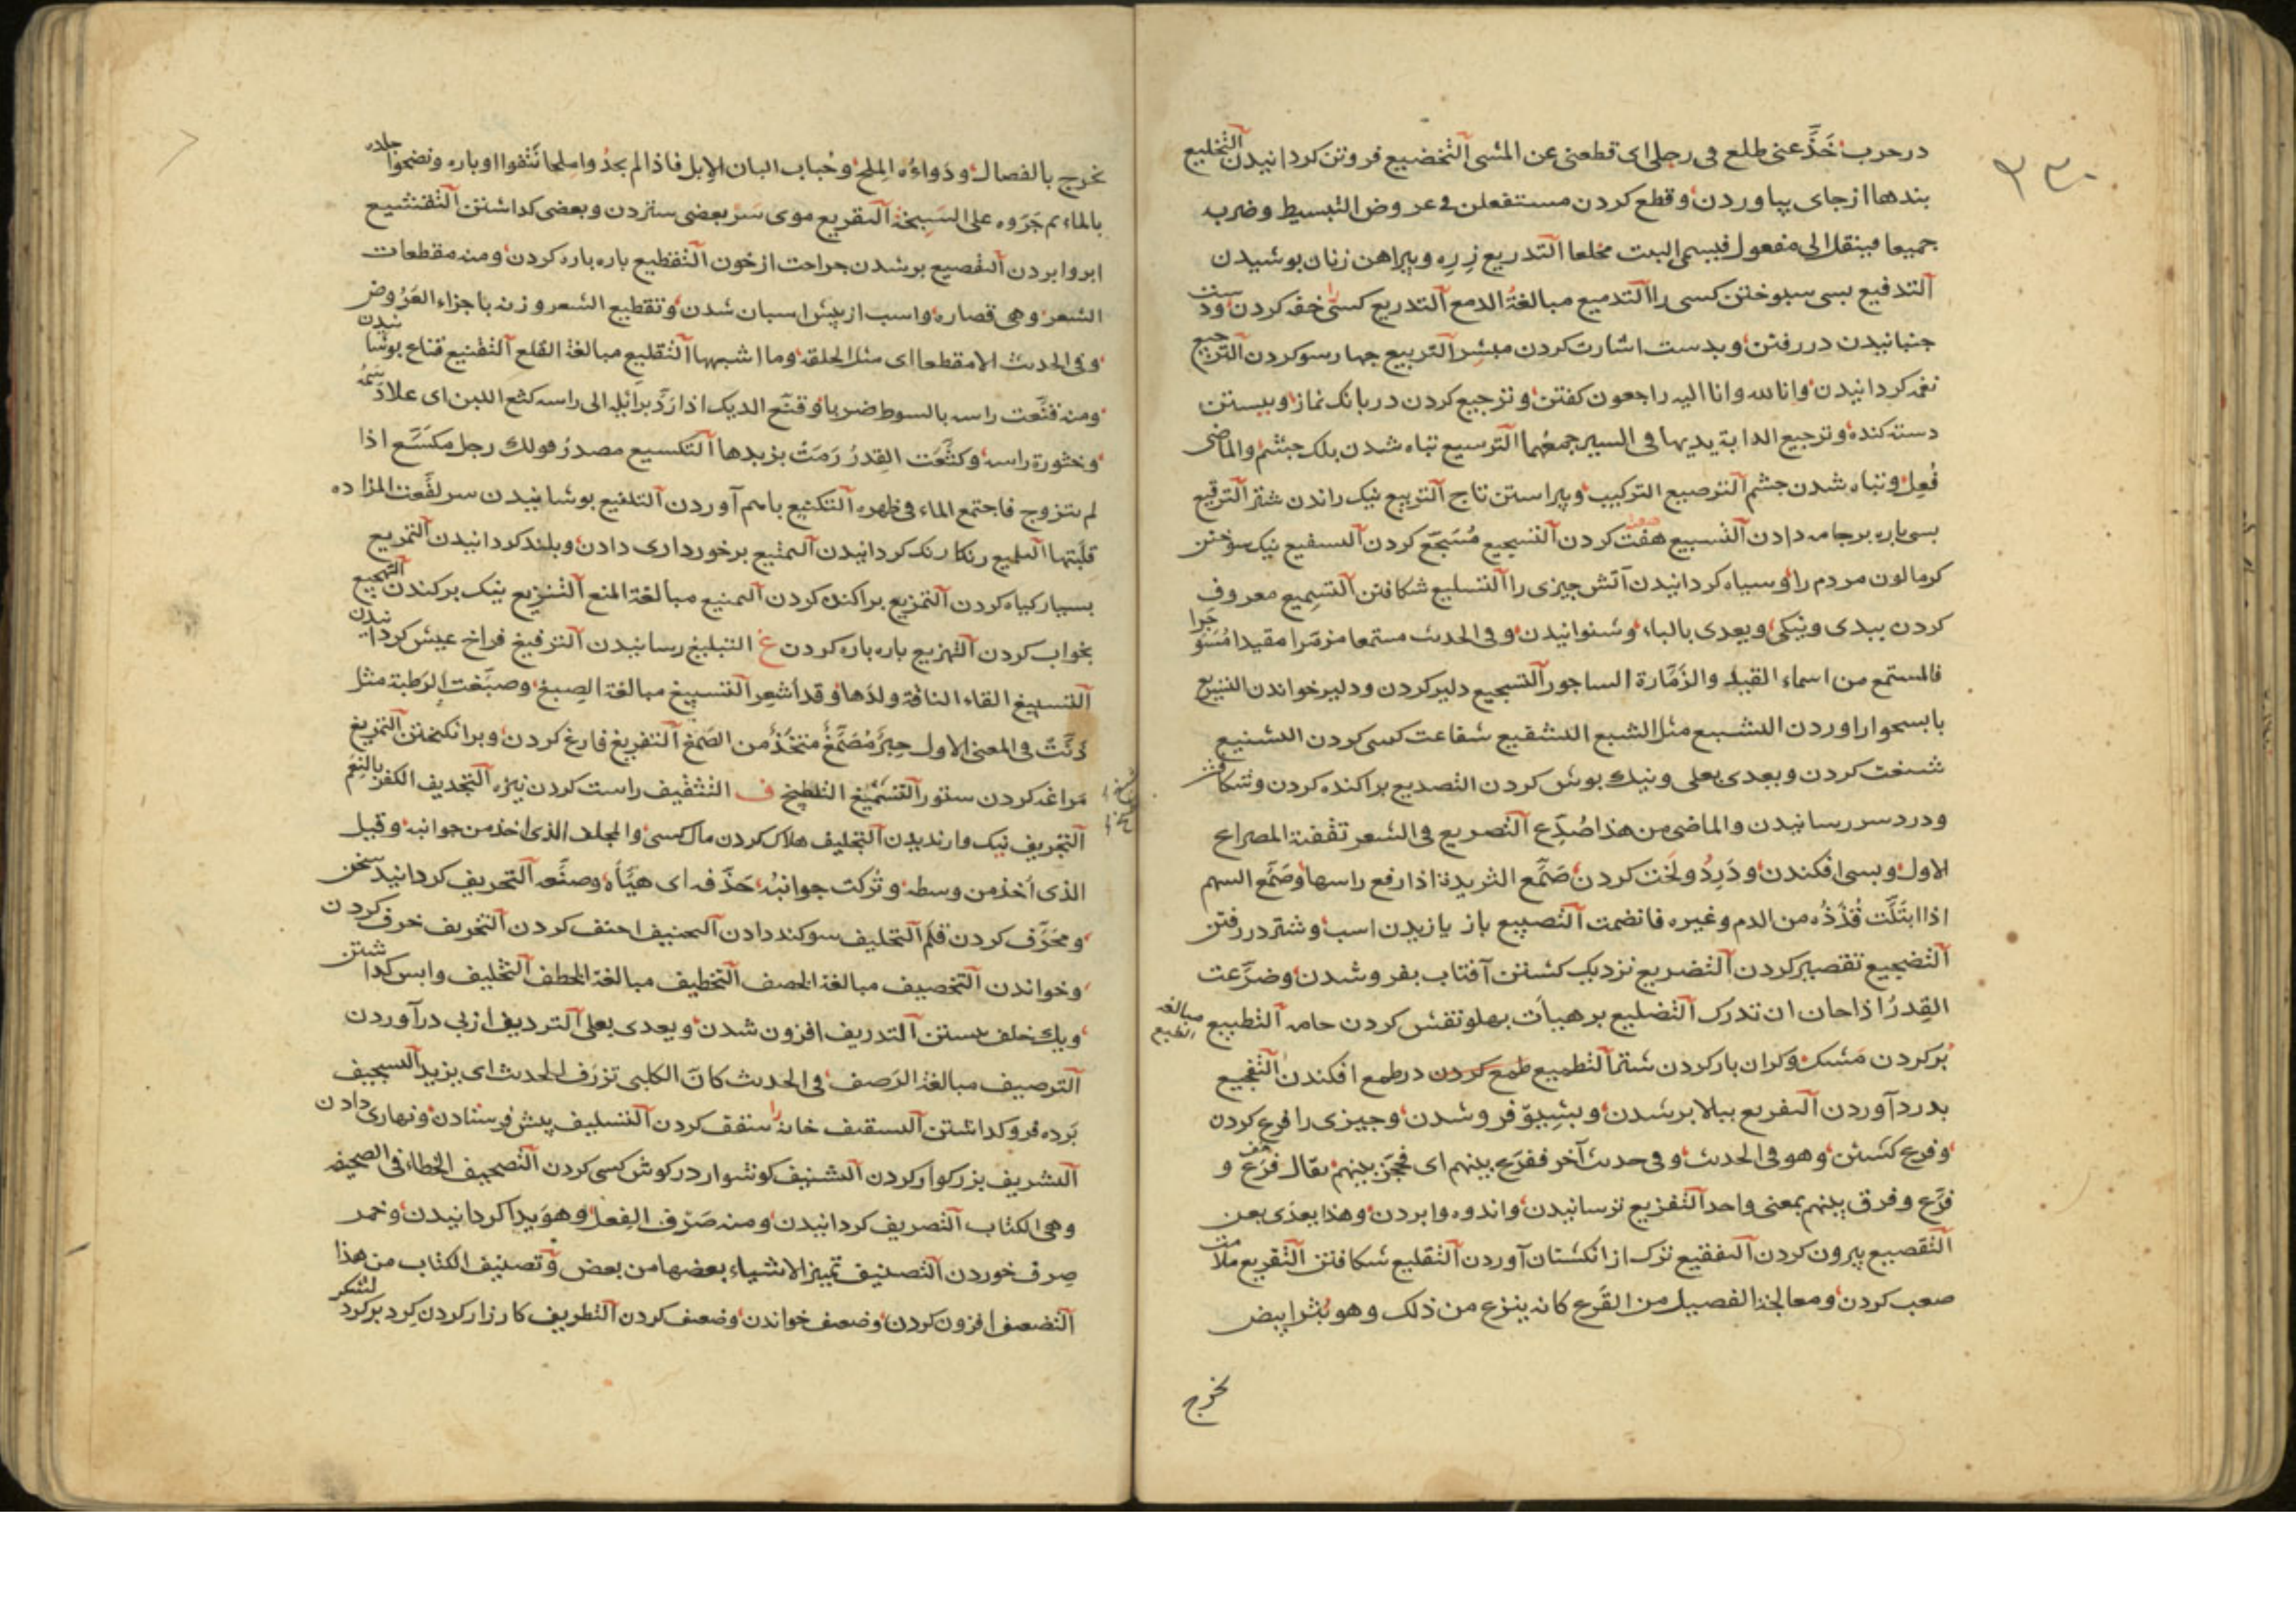 ۲۳۰
در حرب خَذَّعنی ظلع فی رجلی ای قطعنی عن المشی التخضیع فروتن کردانیدن التخلیع
بندها از جای بیاوردن و قطع کردن مستفعلن فی عروض البسیط و ضربه
جمیعا فینقل الی مفعول فیسمی البیت مخلعا التدریع زره و پیراهن زنان پوشیدن
التدفیع بسی سپوختن کسی را التدمیع مبالغةُ الدمع التذریع کسی را خفه کردن و دست
جنبانیدن در رفتن و بدست اشارت کردن مبشر التربیع چهار سو کردن الترجیع
نغمه کردانیدن و انا لله و انا الیه راجعون کفتن و ترجیع کردن در بانک نماز و ببستن
دسته کنده و ترجیع الدابة یدیها فی السیر جمعُهما الترسیع تباه شدن پلک چشم و الماضی
فُعِل و تباه شدن چشم الترصیع الترکیب و پیراستن تاج التربیع نیک راندن شتر الترقیع
بسی پاره بر جامه دادن التسبیع هفت کردن التسجیع مُسَجَّع کردن السفیع نیک سوختن
کرما لون مردم را و سیاه کردانیدن آتش چیزی را التسلیع شکافتن التسمیع معروف
کردن ببدی و نیکی و یعدی بالباء و شنوانیدن و فی الحدیث مستمعا مزمّرا مقیدا مُسَوَّجَرا
فالمستمع من اسماء القید و الزَمَّارة الساجور التشجیع دلیر کردن و دلیر خواندن
التشبیع مثل الشبع التشفیع شفاعت کسی کردن التشنیع
شنعت کردن و یعدی بعلی و نیک پوش کردن التصدیع پراکنده کردن و شکافتن
و درد سر رسانیدن و الماضی من هذا صُدِّع التصریع فی الشعر تقفیة المصراع
الاول و بسی افکندن و دَرِدُو لَخت کردن صَمَّع الثریدة اذا رفع راسها و صَمَّع السهم
اذا ابتَلَّت قُذَذُه من الدم و غیره فانضمت التصبیع باز یازیدن اسب و شتر در رفتن
التضجیع تقصیر کردن التضریع نزدیک کشتن آفتاب بفرو شدن و ضرَّعت
القِدرُ اذا حان ان تدرک التضلیع بر هیأت پهلو نقش کردن جامه التطبیع مبالغه الطبع
پُر کردن مَشک و کران بار کردن شتر التطمیع طمع کردن در طمع افکندن التفجیع
بدرد آوردن التفریع ببالا بر شدن و بشِیبِ فرو شدن و چیزی را فرع کردن
و فرع کشتن و هو فی الحدیث و فی حدیث آخر ففرّع بینهم ای فحجز بینهم یقال فرَع و
فرَّع و فرق بینهم بمعنی واحد التفزیع ترسانیدن و اندوه وا بردن و هذا یعدی بعن
التقصیع بیرون کردن التفقیع ترک از انکشتان آوردن التقلیع شکافتن التقریع ملامت
صعب کردن و معالجة الفصیل من القَرَع کانه ینزع من ذلک و هو بُثر ابیض
یخرج
یخرج بالفصال و دَواءُه المِلح و حُباب البان الابل فاذا لم یجدوا ملحا نَتَفوا اوباره و نضحوا جلده
بالماء ثم جَرّوه علی السَبِخة التقریع موی سر بعضی ستردن و بعضی کذاشتن التقشیع
ابر وا بردن التقصیع پر شدن جراحت از خون التقطیع پاره پاره کردن و منه مقطعات
الشعر و هی قصاره و اسب از پیش اسبان شدن و تقطیع الشعر وزنه باجزاء العَرُوض
و فی الحدیث الا مقطعا ای مثل الحلقة و ما اشبهها التقلیع مبالغة القلع التقنیع قناع پوشانیدن
و منه قنَّعت راسه بالسوط ضربا و قنّع الدیک اذا رَدّ بُرائله الی راسه کثّع اللبن ای علا دَسمُه
و خثورة راسه و کثَّعَت القِدرُ رَمَتْ بزبدها التکسیع مصدر قولک رجل مکسَّع اذا
لم یتزوج فاجتمع الماء فی ظهره التکنیع باهم آوردن التلفیع پوشانیدن سر لفَّعت المزاده
قلَبتها التلمیع رنکا رنک کردانیدن التمتیع برخورداری دادن و بلند کردانیدن التمریع
بسیار کیاه کردن التمزیع پراکنده کردن التمنیع مبالغة المنع التنزیع نیک برکندن التهجیع
بخواب کردن التهزیع پاره پاره کردن غ التبلیغ رسانیدن الترفیغ فراخ عیش کردانیدن
التسبیغ القاء الناقة ولدَها و قد اُشعِر التصبیغ مبالغة الصبغ و صبَّغت الرُطبة مثل
ذنَّبَت فی المعنی الاول حِبرٌ مُصَمَّغٌ متخَذٌ من الصَمغ التفریغ فارغ کردن و برانکیختن التمریغ
مَراغه کردن ستور ف التثقیف راست کردن نیزه التجدیف الکفر بالنِعَم
التجریف نیک وا رندیدن التجلیف هلاک کردن مال کسی و المجلف الذی اخذ من جوانبه و قیل
الذی اُخذ من وسطه و تُرکت جوانبُه حَذّفه ای هیَّأه و صنَّعه التحریف کردانیدن سخن
و محَرَّف کردن قلم التحلیف سوکند دادن التحنیف احنف کردن التخریف خرف کردن
و خواندن التخصیف مبالغة الخصف التخطیف مبالغة الخطف التخلیف واپس کذاشتن
و یک خلف بستن التذریف افزون شدن و یعدی بعلی التردیف از پی درآوردن
الترصیف مبالغة الرَصف فی الحدیث کان الکلبی تزرِّف الحدیث ای یزید التسجیف
پرده فرو کذاشتن التسقیف خانه را سقف کردن التسلیف پیش فرستادن و نهاری دادن
التشریف بزرکوار کردن التشنیف کوشوار در کوش کسی کردن التصحیف الخطاء فی الصحیفه
و هی الکتاب التصریف کردانیدن و منه صَرّف الفِعل و هویدا کردانیدن و خمر
صِرف خوردن التصنیف تمییز الاشیاء بعضها من بعض و تصنیف الکتاب من هذا
التضعیف افزون کردن و ضعیف خواندن و ضعیف کردن التطریف کارزار کردن کرد بر کرد لشکر